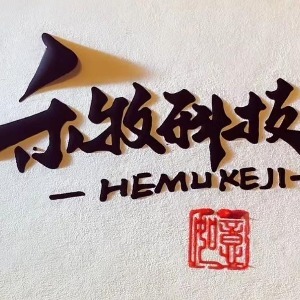 禾牧科技
— HEMUKEJI —
如意